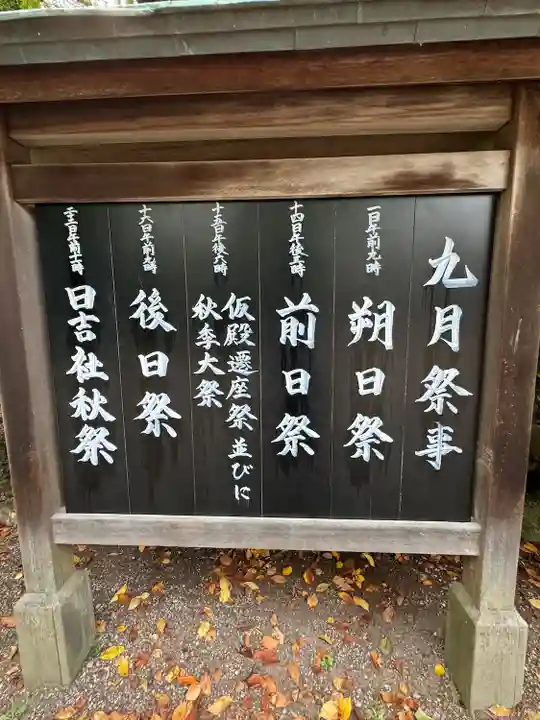 九月祭事
一日午前九時
朔日祭
十四日午後三時
前日祭
十五日午後六時
仮殿遷座祭並びに
秋季大祭
十六日午前九時
後日祭
二十三日午前十一時
日吉社秋祭